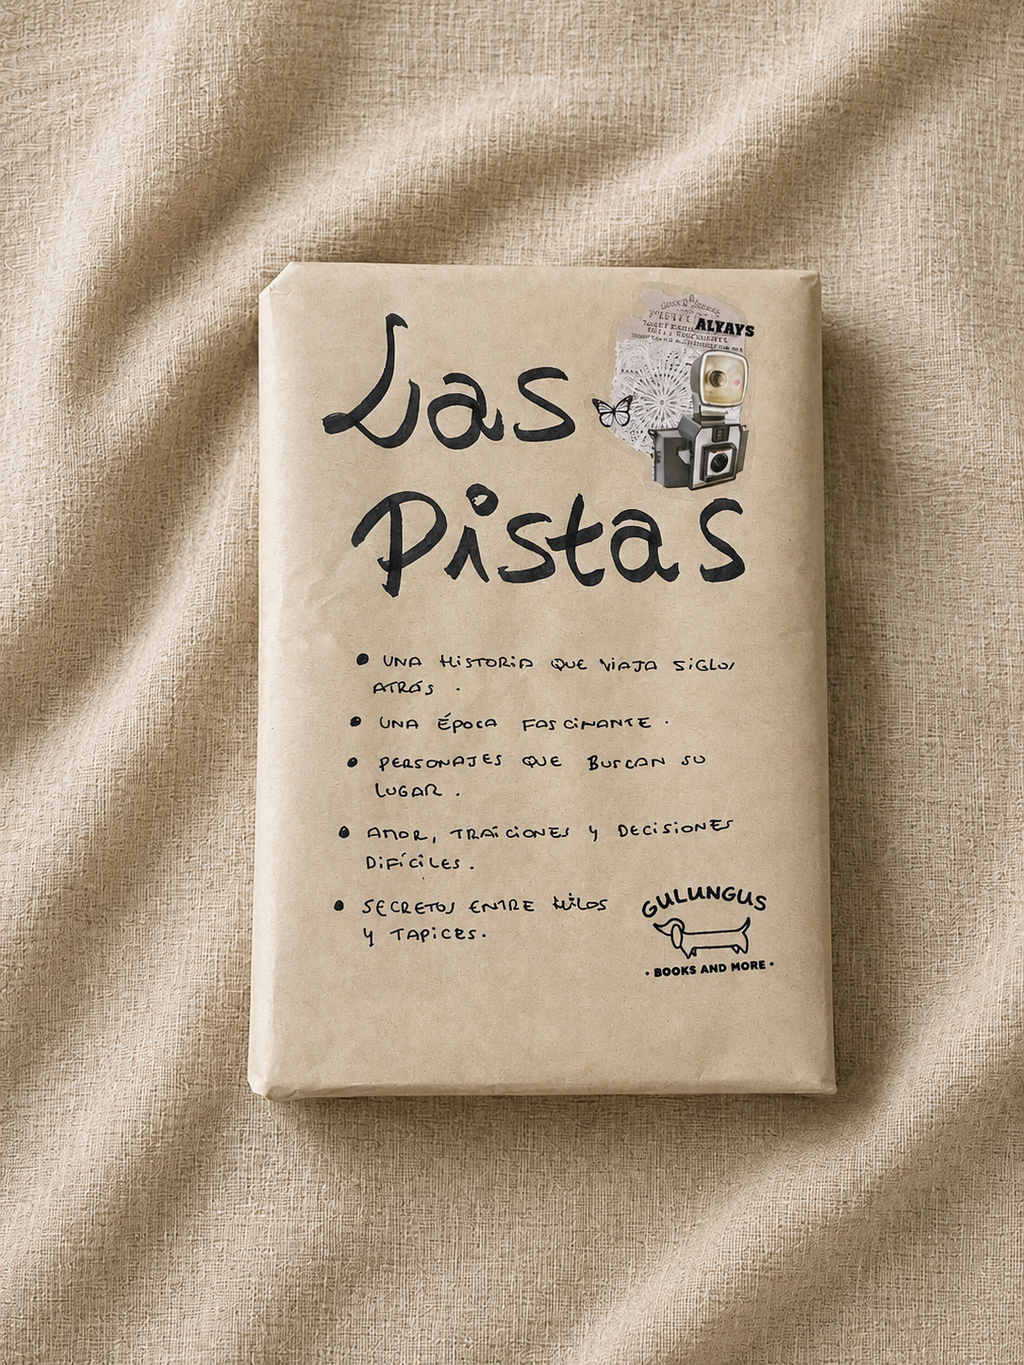 Las
ALYAYS
Pistas
• UNA HISTORIA QUE VIAJA SIGLOS
ATRÁS.
• UNA ÉPOCA FASCINANTE.
• PERSONAJES QUE BUSCAN SU
LUGAR.
• AMOR, TRAICIONES Y DECISIONES
DIFÍCILES.
• SECRETOS ENTRE HILOS
Y TAPICES.
GULUNGUS
• BOOKS AND MORE •